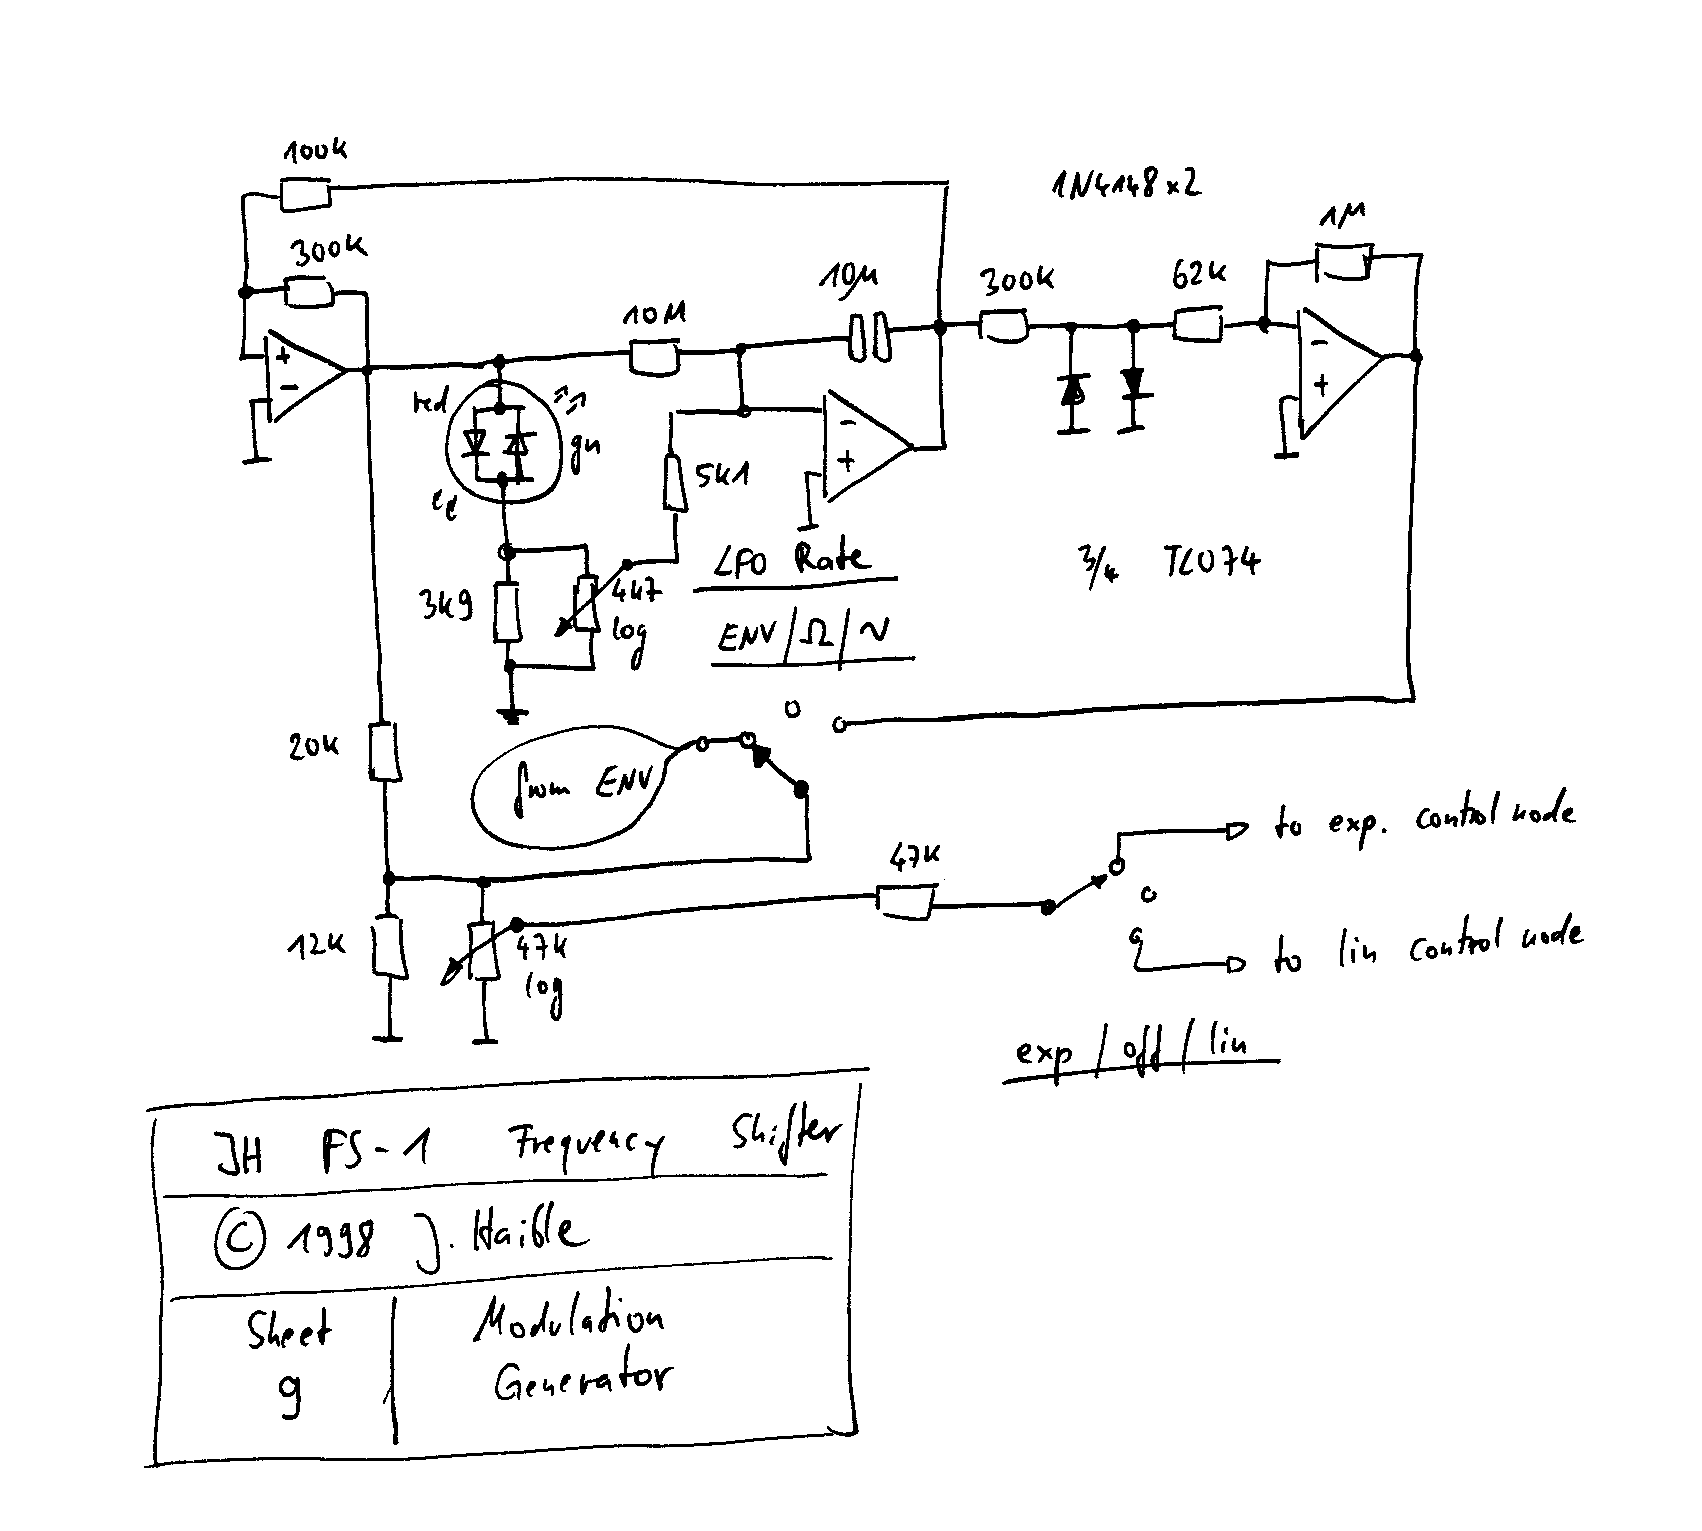 100k
1N4148x2
1M
300k
10µ
300k
62k
10M
+
-
red
gn
-
+
5k1
-
+
LFO Rate
3/4 TL074
3k9
4k7
log
ENV/Ω/~
20k
from ENV
to exp. control node
47k
12k
47k
log
to lin control node
exp / off / lin
JH FS-1 Frequency Shifter
© 1998 J. Haible
Sheet
9
Modulation
Generator